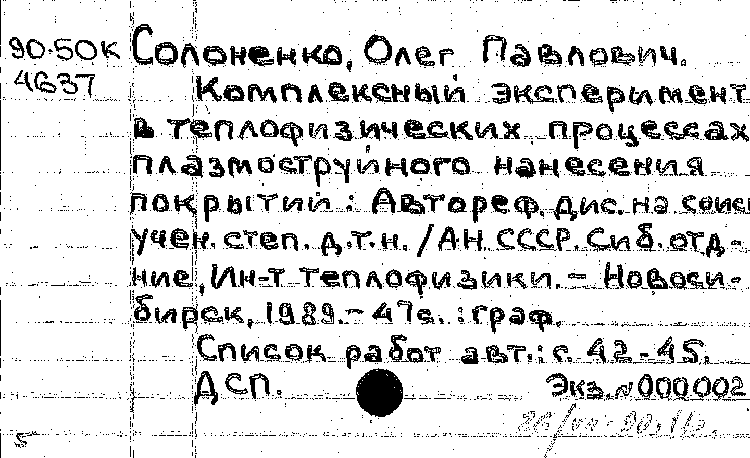 90-50К Солоненко, Олег Павлович.
4637 Комплексный эксперимент
в теплофизических процессах
плазмоструйного нанесения
покрытий : Автореф. дис. на соиск
учен. степ. д.т.н. /АН СССР. Сиб. отд-
ние, Ин-т теплофизики. – Новоси-
бирск, 1989. – 47с. : граф.
Список работ авт.: с. 42-45.
ДСП. Экз. N000002
5